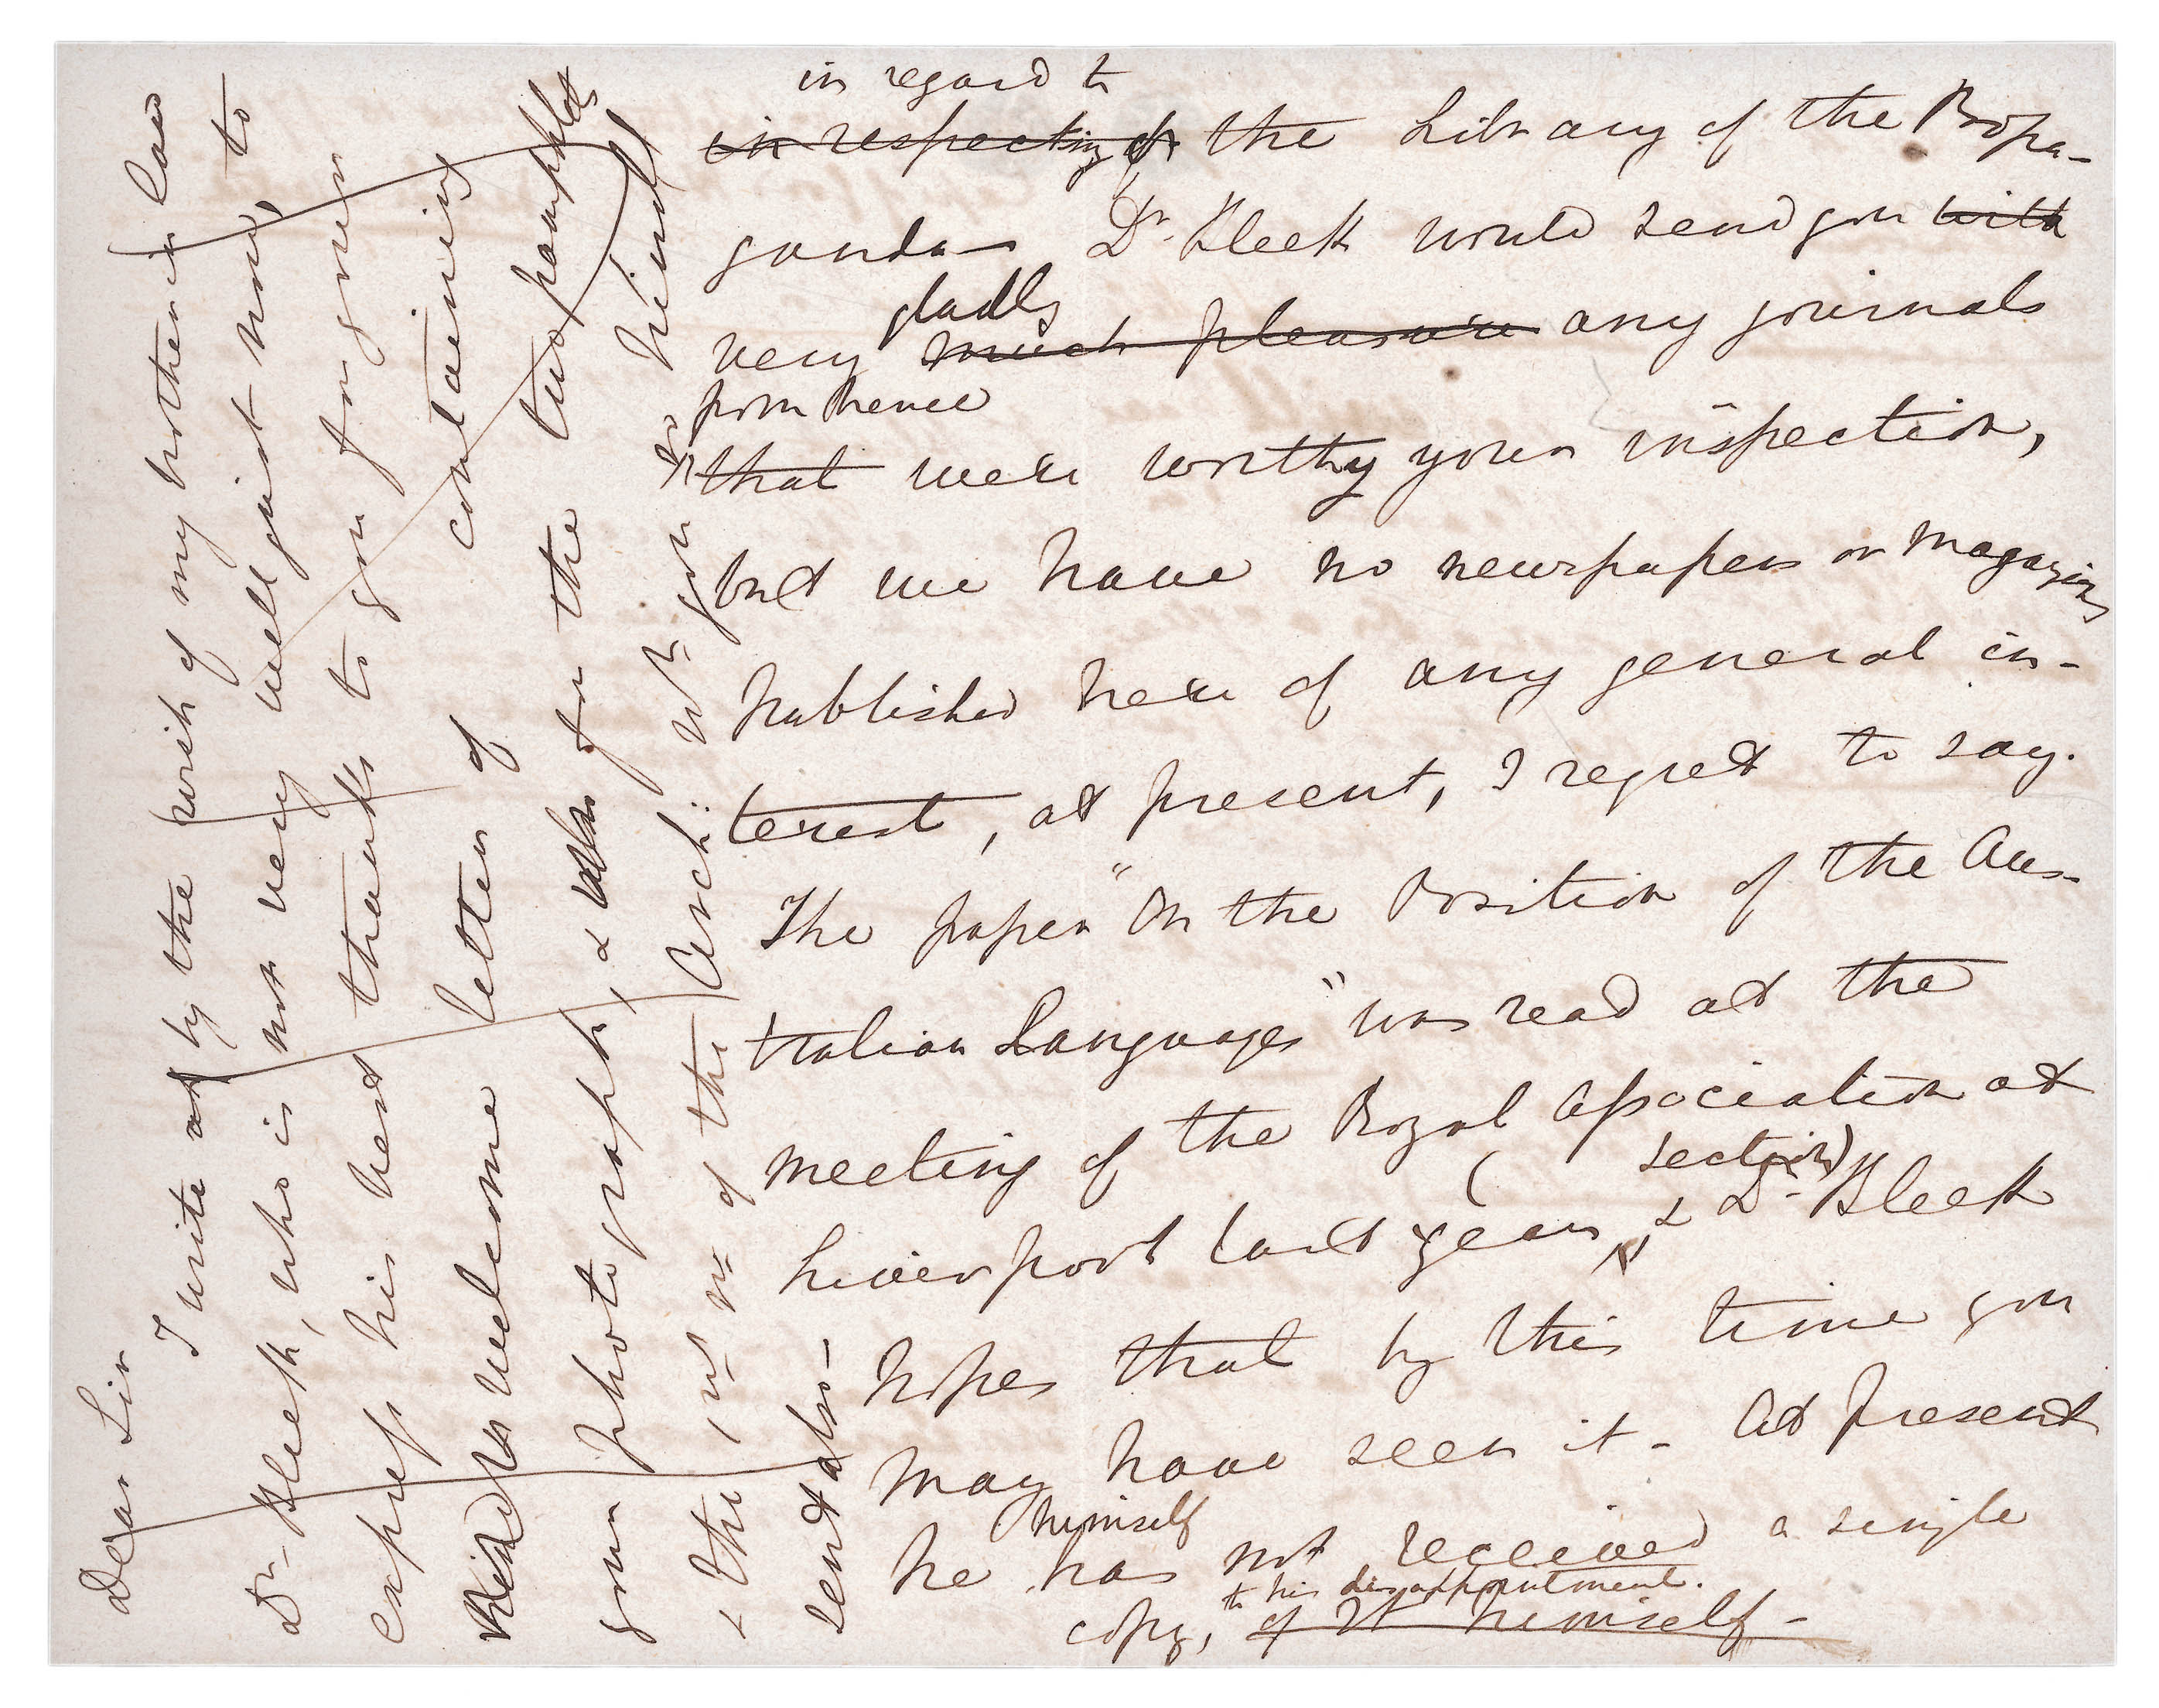 Dear Sir
I write at by the wish of my brother in law
Dr. Bleek, who is not very well just now, to
express his best thanks to you for your
kind & welcome letter of containing
your photograph, & also for the two pamphlets
& the 1st no. of the Archiv wh. you so kindly
sent also—
in regard to
in respecting of the Library of the Propa-
ganda— Dr. Bleek would send you with
gladly
very much pleasure any journals
from hence
that were worthy your inspection,
but we have no newspapers or Magazines
published here of any general in-
terest, at present, I regret to say.
The paper "On the Position of the Aus-
tralian Languages" was read at the
meeting of the Royal Association at
( section)
Liverpool last year, & Dr. Bleek
hopes that by this time you
may have seen it - At present
himself
he has not received a single
to his disappointment.
copy, of it himself -